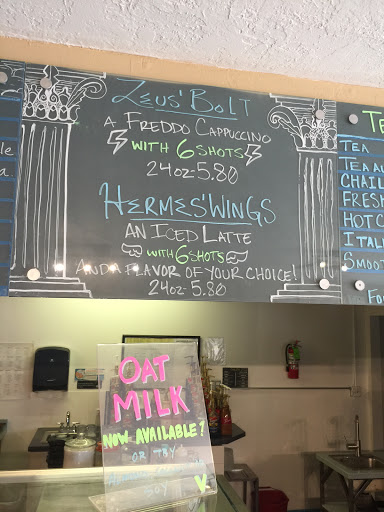 Zeus' Bolt
A Freddo Cappuccino
with 6 shots
24oz-5.80
Hermes' Wings
An Iced Latte
with 6 shots
and a flavor of your choice!
24oz-5.80
Tea
Fresh
Hot C
Ital
Smoot
OAT
MILK
NOW AVAILABLE!
OR TRY
SOY